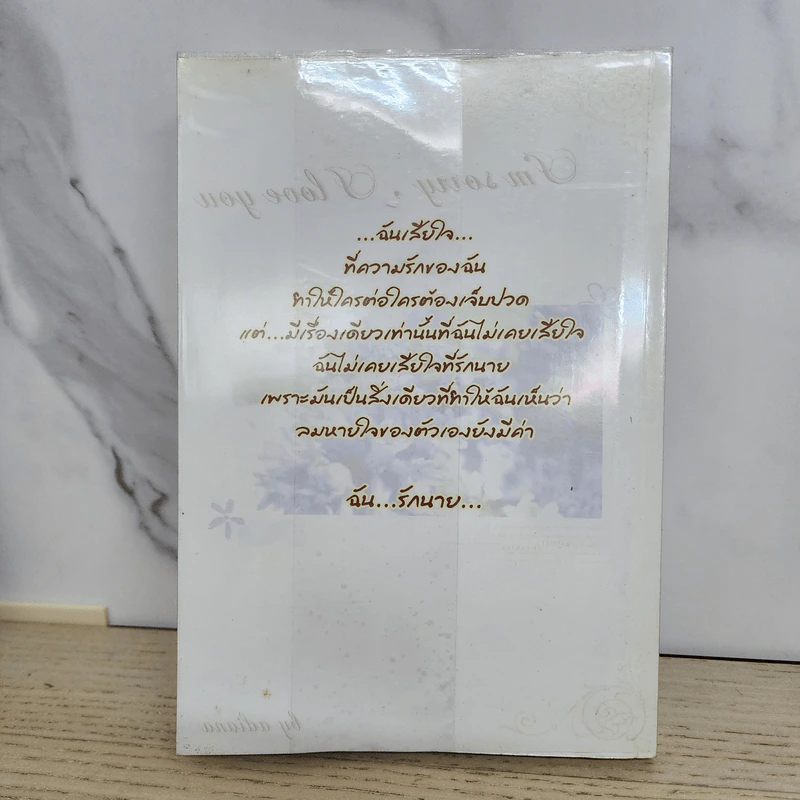 I'm sorry, I love you
...ฉันเสียใจ...
ที่ความรักของฉัน
ทำให้ใครต่อใครต้องเจ็บปวด
แต่...มีเรื่องเดียวเท่านั้นที่ฉันไม่เคยเสียใจ
ฉันไม่เคยเสียใจที่รักนาย
เพราะมันเป็นสิ่งเดียวที่ทำให้ฉันเห็นว่า
ลมหายใจของตัวเองยังมีค่า
ฉัน...รักนาย...
by adiana